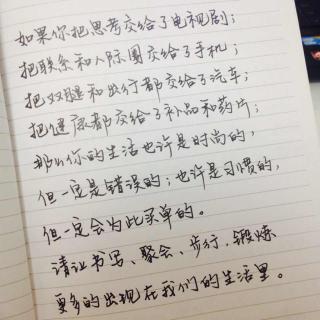 如果你把思考交给了电视剧；
把联系和人际圈交给了手机；
把双腿和出行都交给了汽车；
把健康都交给了补品和药片；
那么你的生活也许是时尚的，
但一定是错误的；也许是习惯的，
但一定会为此买单的。
请让书写、聚会、步行、锻炼
更多的出现在我们的生活里。